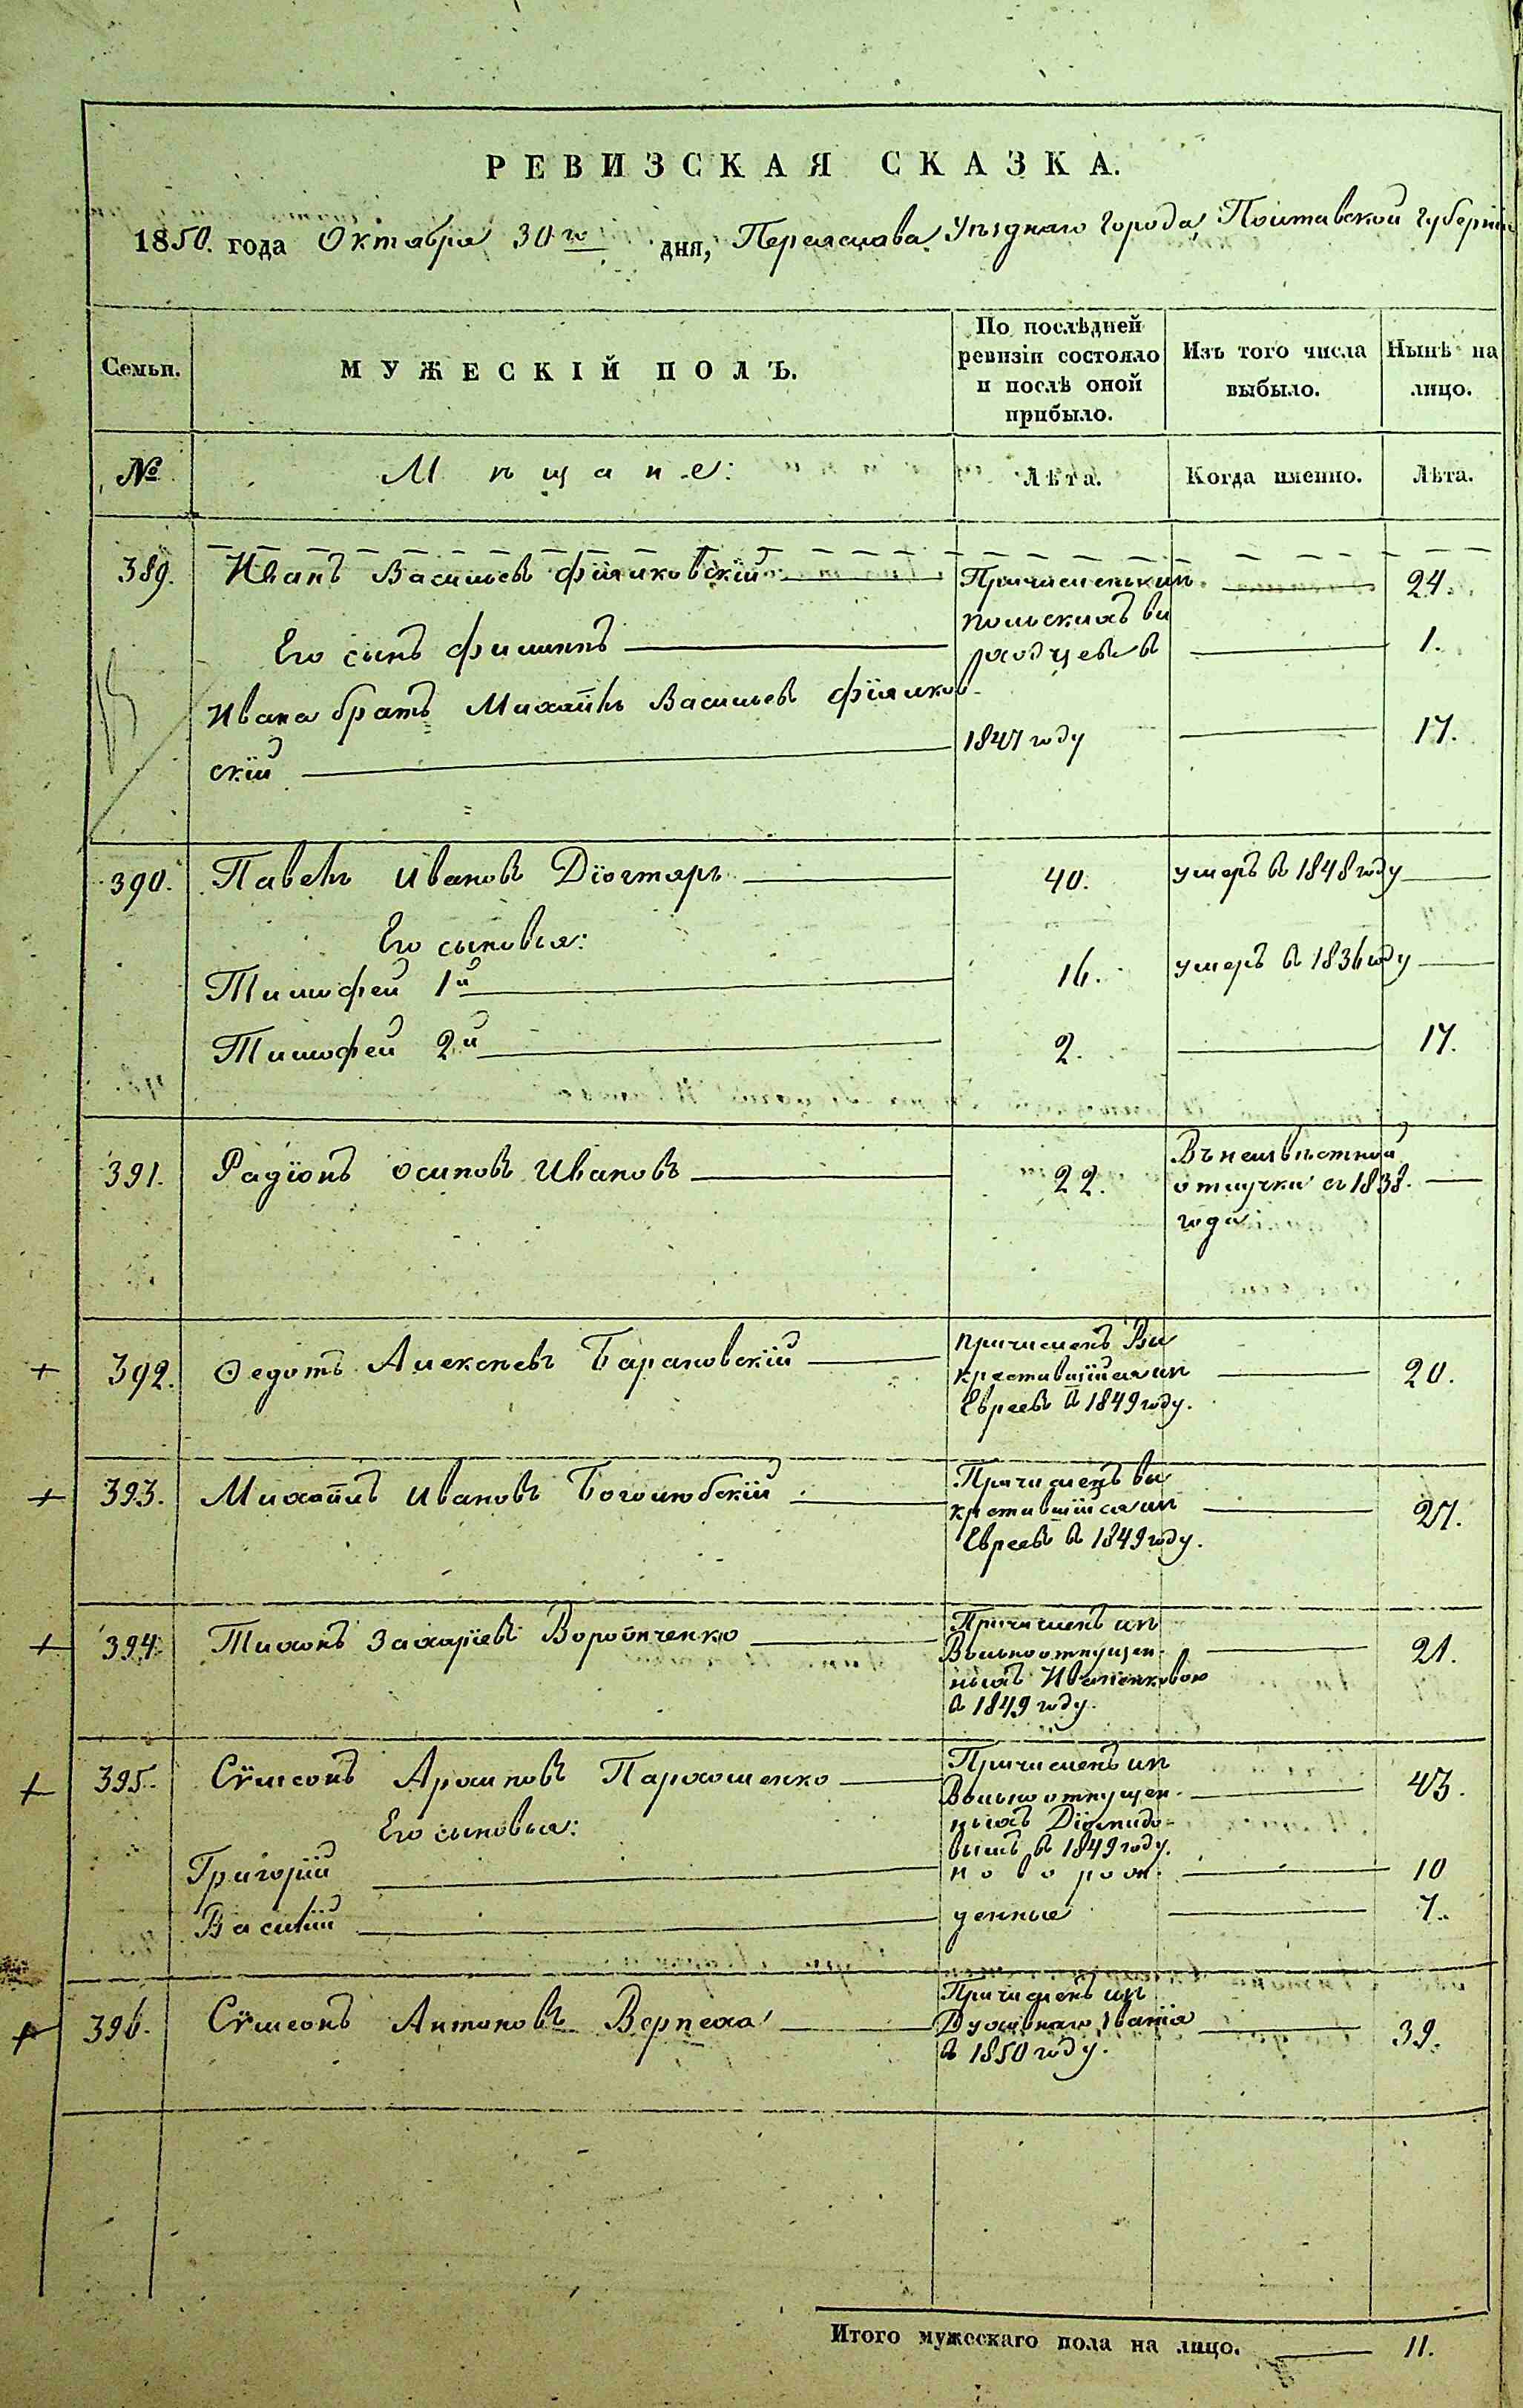 РЕВИЗСКАЯ СКАЗКА.
1850. года Октября 30го дня, Переяслова Уѣзднаго Города, Полтавской Губерніи
Семьи. МУЖЕСКІЙ ПОЛЪ. По послѣдней ревизіи состояло и послѣ оной прибыло. Изъ того числа выбыло. Нынѣ на лицо.
№ Мѣщане: Лѣта. Когда именно. Лѣта.
389. Иванъ Васильевъ Фіялковскій Причислены изъ 24.
Его сынъ Филипъ польскихъ вы 1.
ходцевъ в
Ивана братъ Михайлъ Васильевъ Фіялков-
скій 1847 году 17.
390. Павелъ Ивановъ Діогтярь 40. умеръ въ 1848 году
Его сыновья:
Тимофей 1й 16. умеръ в 1836 году
Тимофей 2й 2. 17.
391. Радіонъ Осиповъ Ивановъ 22. Въ неизвѣстной
отлучки съ 1838.
года
392. Ѳедотъ Алексѣевъ Барановскій причисленъ Вы
крестившійся изъ 20.
Евреевъ в 1849 году.
393. Михайлъ Ивановъ Боголюбскій Причисленъ вы
крстившійся изъ 27.
Евреевъ в 1849 году.
394. Тихонъ Захаріевъ Воробченко Причисленъ изъ
Вольноотпущен- 21.
ныхъ Иваненковою
в 1849 году.
395. Сѵмеонъ Архиповъ Пархоменко Причисленъ изъ
Вольноотпущен- 43.
Его сыновья: ныхъ Діомидо-
вымъ в 1849 году.
Григорій новорож- 10
Василій денные 7.
396. Сѵмеонъ Антоновъ Верпеха Причисленъ изъ
Духовнаго званія 39.
в 1850 году.
Итого мужескаго пола на лицо. 11.